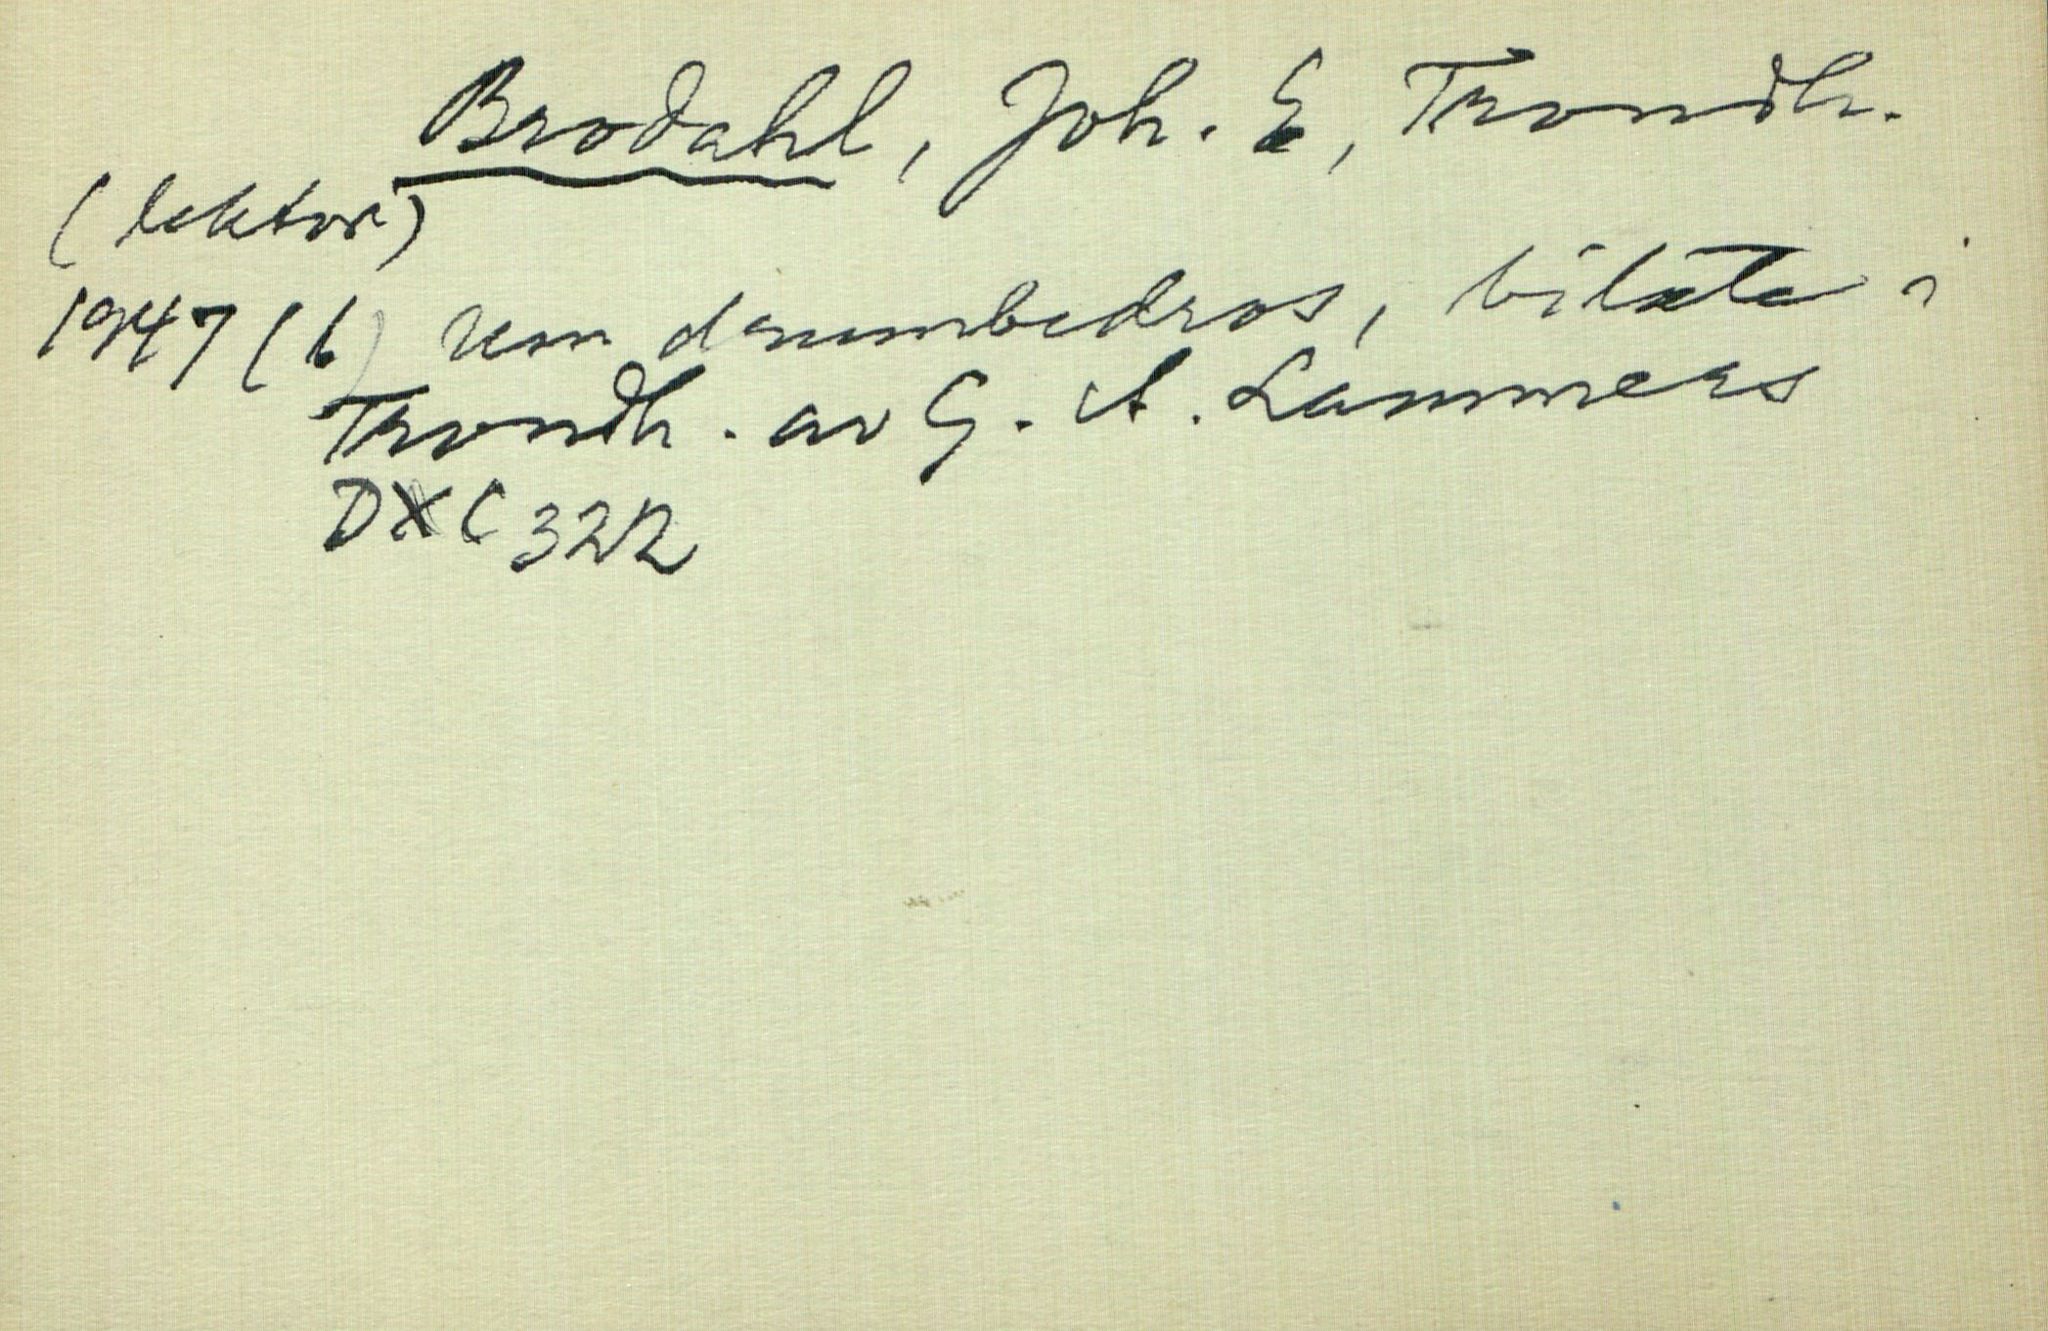 Brodahl, Joh. E, Trondh.
(lektor)
1947 (b) Um draumkedros, bilete i
Trondh. av G. A. Lammers
DXC 322